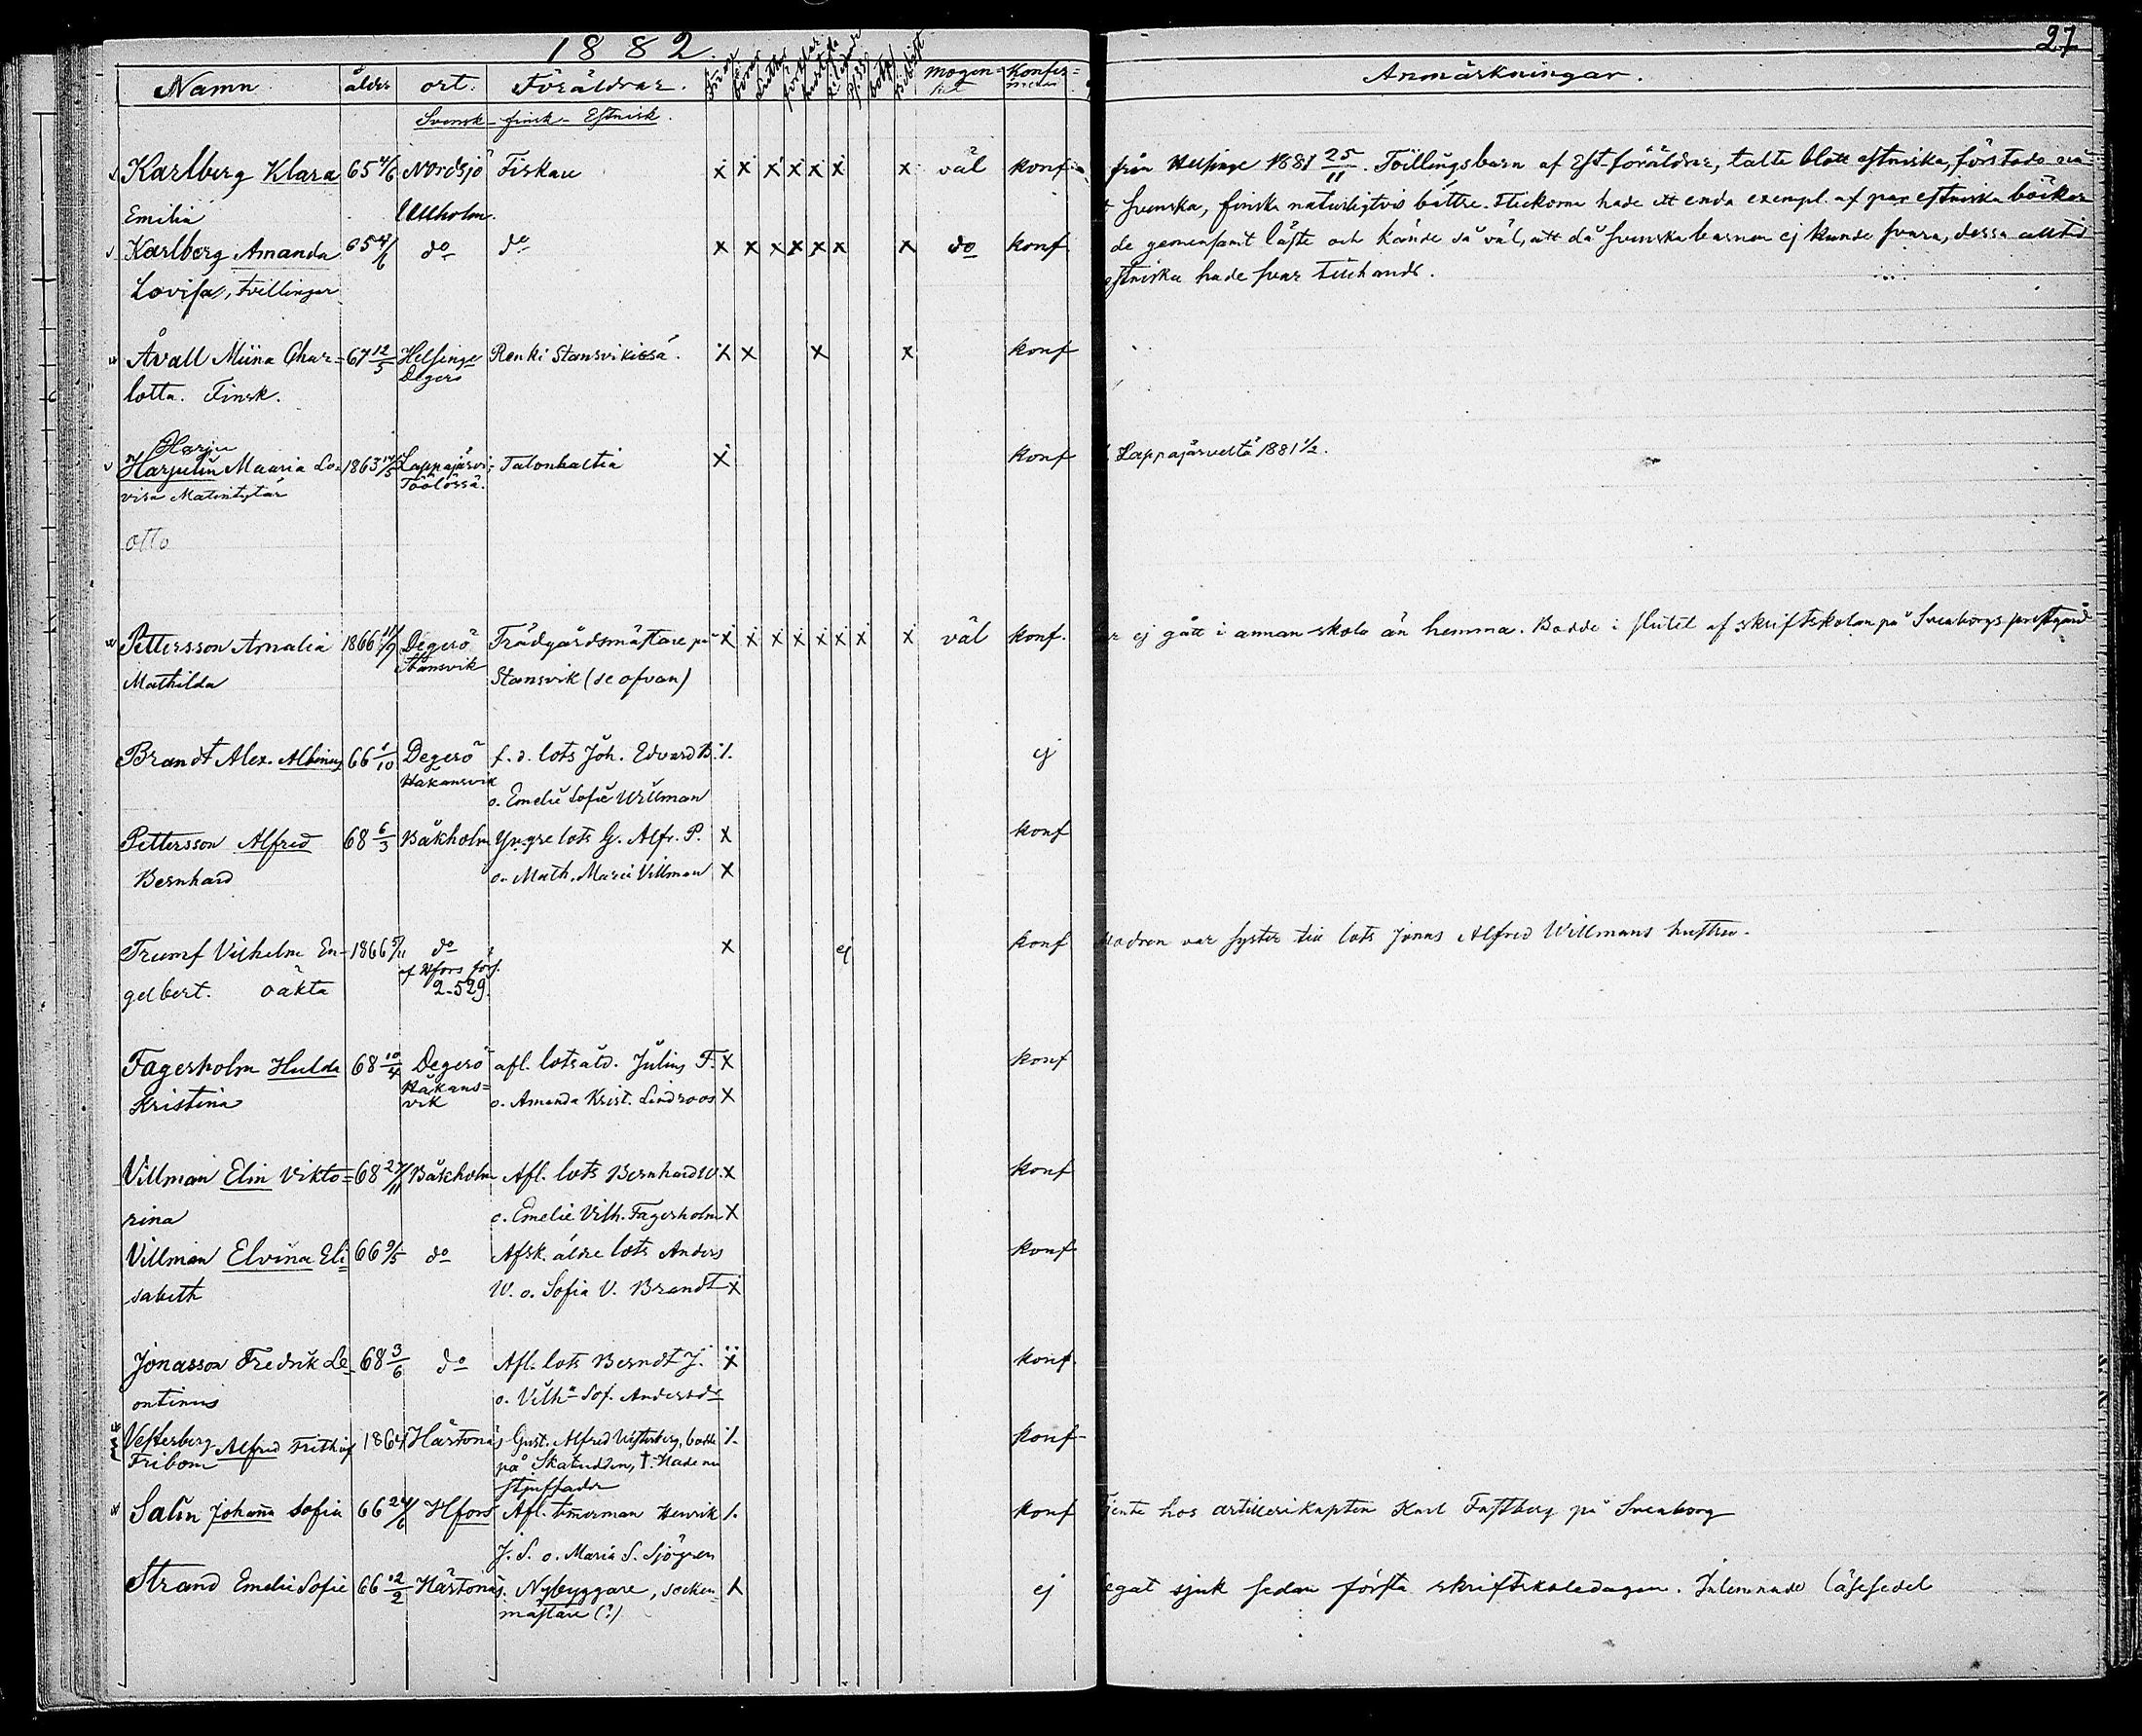 1882.
27
Namn ålder ort. Föräldrar. mogen= het Konfir= Anmärkningar.
Svensk - finsk - Estnisk.
Karlberg Klara 65 4/6 Nordsjö Fiskare x x x x x x x väl konf från Helsinge 1881 25/11. Tvillingsbarn af Est-föräldrar, talte blott estniska, förstodo
Emilia Ullholm. Svenska, finska naturligtvis bättre. Flickorna hade ett enda exempl. af par estniska böcker
Karlberg Amanda 65 4/6 do do x x x x x x x do konf. de gemensamt läste och kände så väl, att då svenska barnen ej kunde svara, dessa alltid
Lovisa, tvillingar estniska hade svar tillhands.
Åvall Miina Char= 67 12/5 Helsinge Renki Stansvikissä. x x x x konf
lotta. Finsk. Degerö
Harju
Harjulin Maaria Lo= 1863 Lappajärvi; Talonhaltia x konf Lappajärveltä 1881 1/2.
visa Matintytär Töölössä.
otto
Pettersson Amalia 1866 11/9 Degerö Trädgårdsmästare på x x x x x x x x väl konf. ej gått i annan skola än hemma. Bodde i slutet af skriftskolan på Sveaborgs prestgård
Mathilda Stansvik Stansvik (se ofvan)
Brandt Alex. Albinus 66 1/10 Degerö f. d. lots Joh. Edvard B. ej
Håkansvik o. Emelie Sofie Willman
Pettersson Alfred 68 6/3 Båkholm Yngre lots G. Alfr. P. x konf
Bernhard o. Math. Maria Villman x
Trumf Vilhelm En- 1866 5/11 do x ej konf Modren var syster till lots Jonas Alfred Willmans hustru.
gelbert. oäkta af Hfors förs.
2-529.
Fagerholm Hulda 68 10/4 Degerö afl. lotsåld. Julius F. x konf
Kristina Håkans= vik o. Amanda Krist. Lindroos x
Villman Elin Vikto= 68 27/11 Båkholm Afl. lots Bernhard W. x konf
rina o. Emelie Vilh. Fagerholm x
Villman Elvina Eli= 66 9/5 do Afsk. äldre lots Anders konf
sabeth W. o. Sofia V. Brandt x
Jonasson Fredrik Le- 68 3/6 do Afl. lots Berndt J. x konf.
ontinus o. Vilh:a Sof. Andersdr
Vesterberg Alfred Frithiof 1864 Härtonäs Gust. Alfred Vesterberg, bodde konf-
Fribom på Skatudden, †. Hade nu
stjuffader
Salin Johanna Sofia 66 24/6 Hfors Afl. timerman Henrik konf Tjente hos artillerikapten Karl Fastberg på Sveaborg
J. S. o. Maria S. Sjögren
Strand Emelie Sofie 66 12/2 Härtonäs. Nybyggare, socken= x ej legat sjuk sedan första skriftskoledagen. Inlemnade läsesedel
mästare (?)